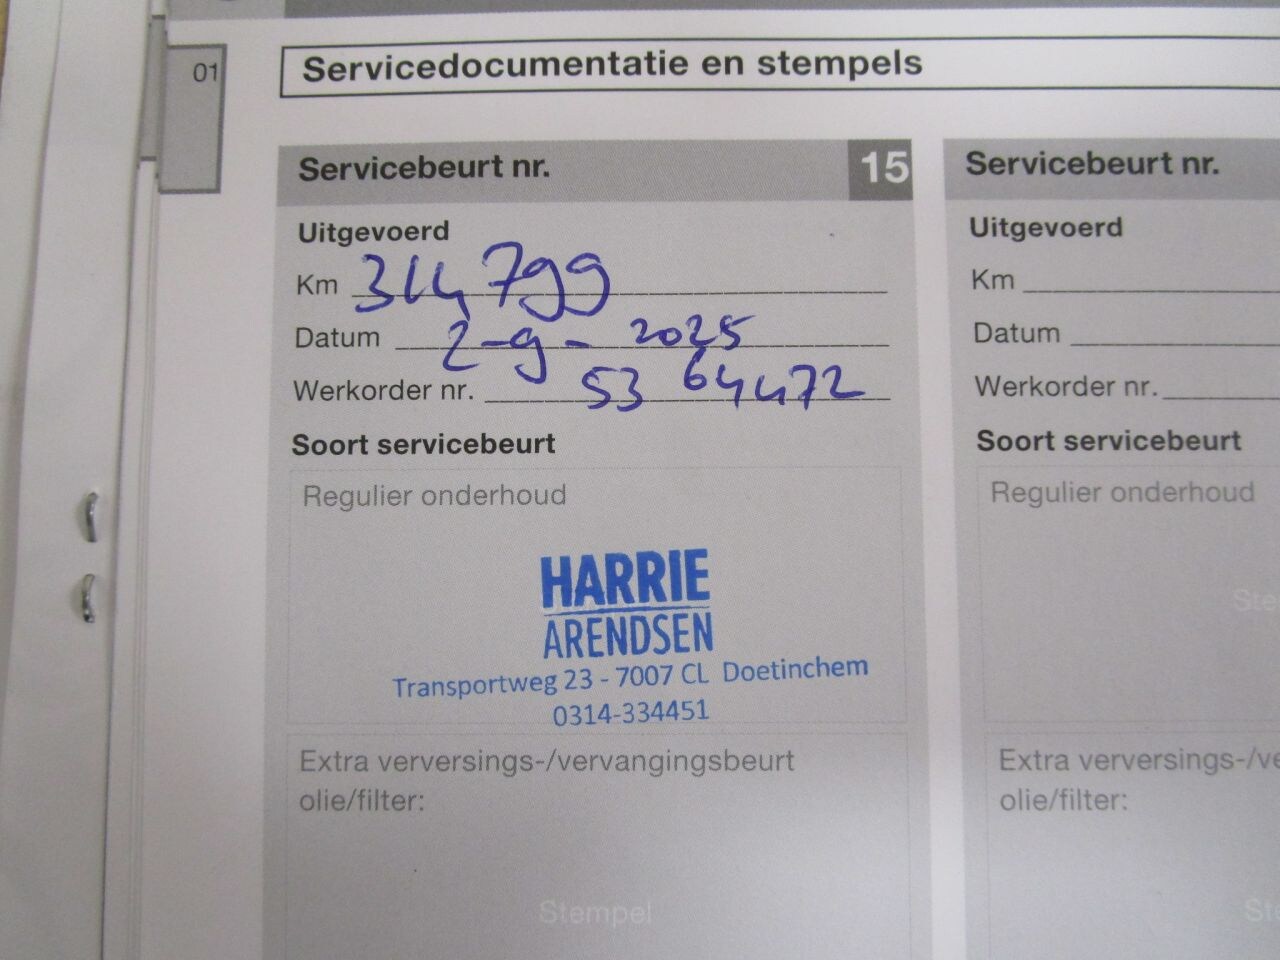 01
Servicedocumentatie en stempels
Servicebeurt nr. 15
Uitgevoerd
Km 314799
Datum 2-9-2025
Werkorder nr. 5364472
Soort servicebeurt
Regulier onderhoud
HARRIE
ARENDSEN
Transportweg 23 - 7007 CL Doetinchem
0314-334451
Extra verversings-/vervangingsbeurt
olie/filter:
Stempel
Servicebeurt nr.
Uitgevoerd
Km
Datum
Werkorder nr.
Soort servicebeurt
Regulier onderhoud
Ste
Extra verversings-/ve
olie/filter:
St